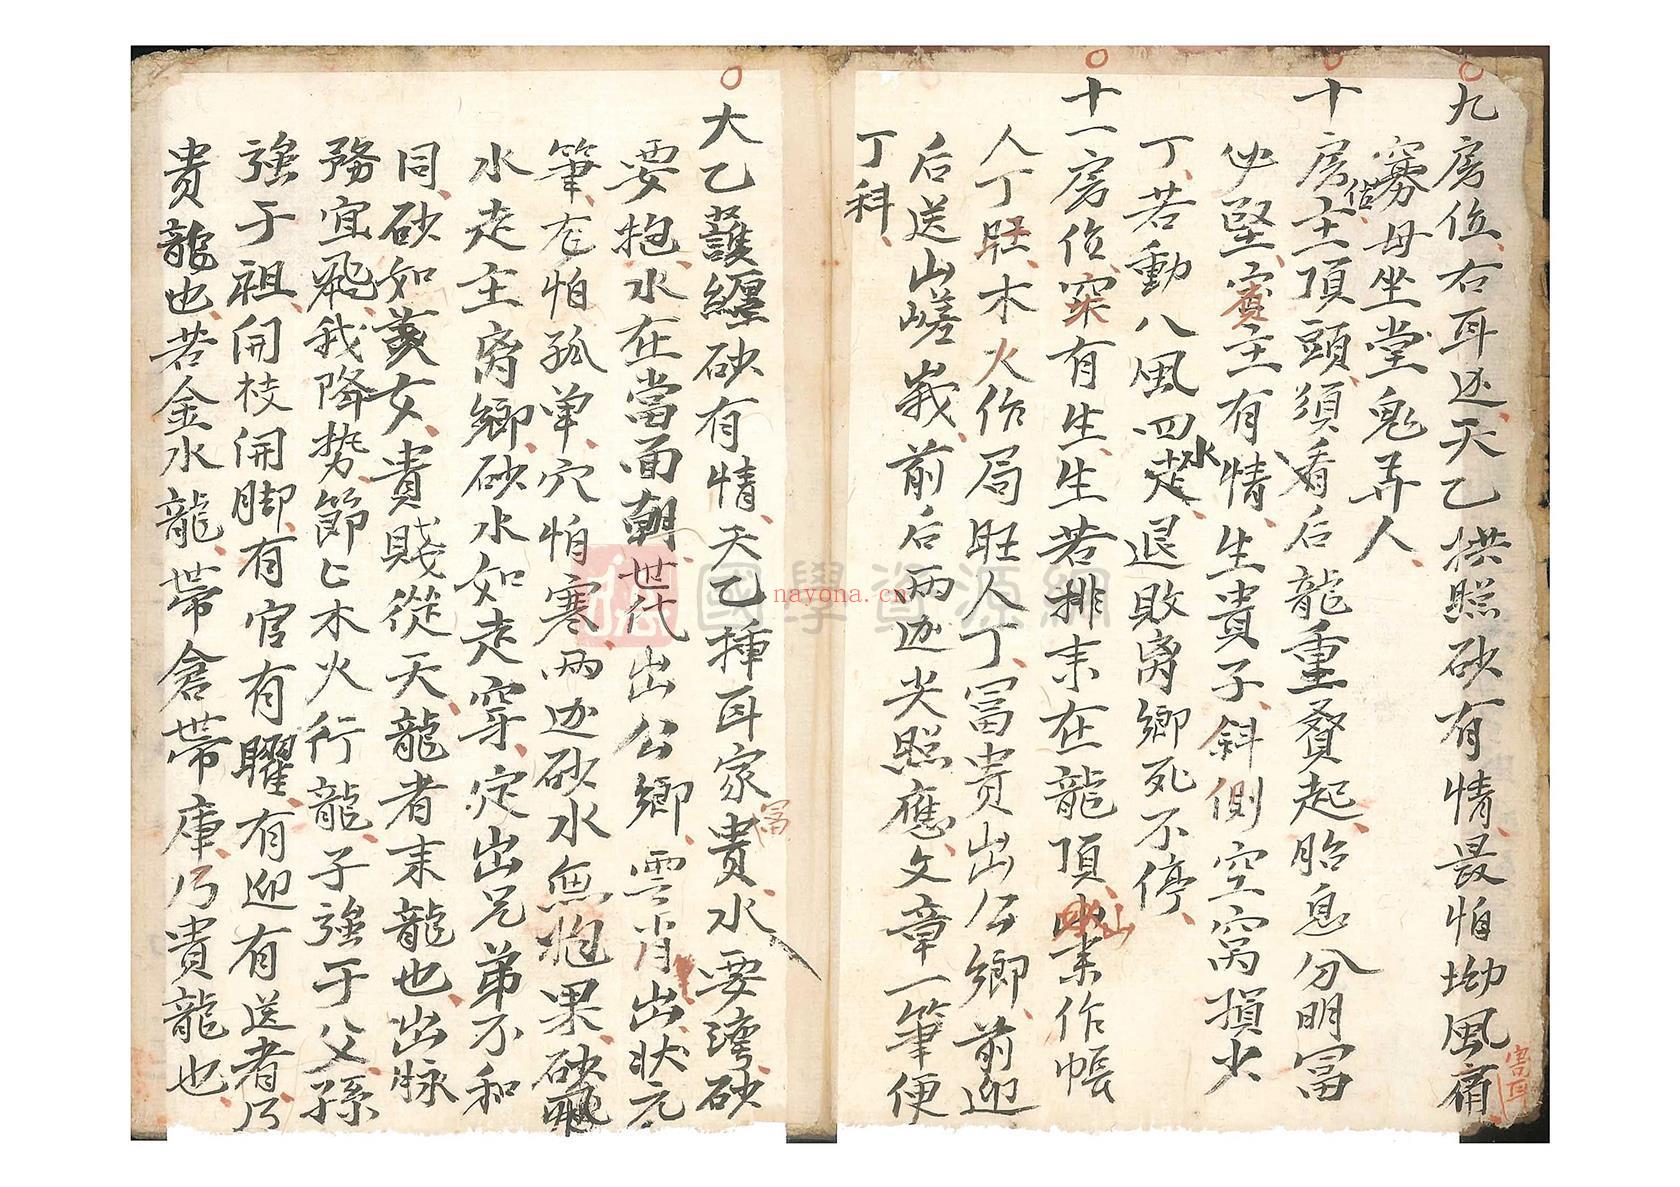 九房位右耳边天乙拱照砂有情最怕坳風痛
害耳
寡母坐堂鬼弄人
十房主頂頭須看后龍重賛起胎息分明富
位
必堅賓主有情生貴子斜側空窝損少
丁若動八風四水走退敗离鄉死不停
十一房位案有生生若排来在龍頂山来作帳
人丁旺木火作局旺人丁富貴出公鄉前迎
后送山嵯峩前后两边尖照應文章一筆便
丁科
大乙護纏砂有情天乙捶耳家富貴水要湾砂
要抱水在當面朝世代出公鄉雲肖出状元
筆左怕孤单穴怕寒两边砂水無抱果砂飛
水走主离鄉砂水如走穿定出兄弟不和
同砂如美女貴賤從天龍者来龍也出脉
務宜飛我降势節匕木火行龍子強于父孫
強于祖開枝開脚有官有曜有迎有送者乃
貴龍也若金水龍帶倉帶庫乃貴龍也
國學資源網
nayona.cn